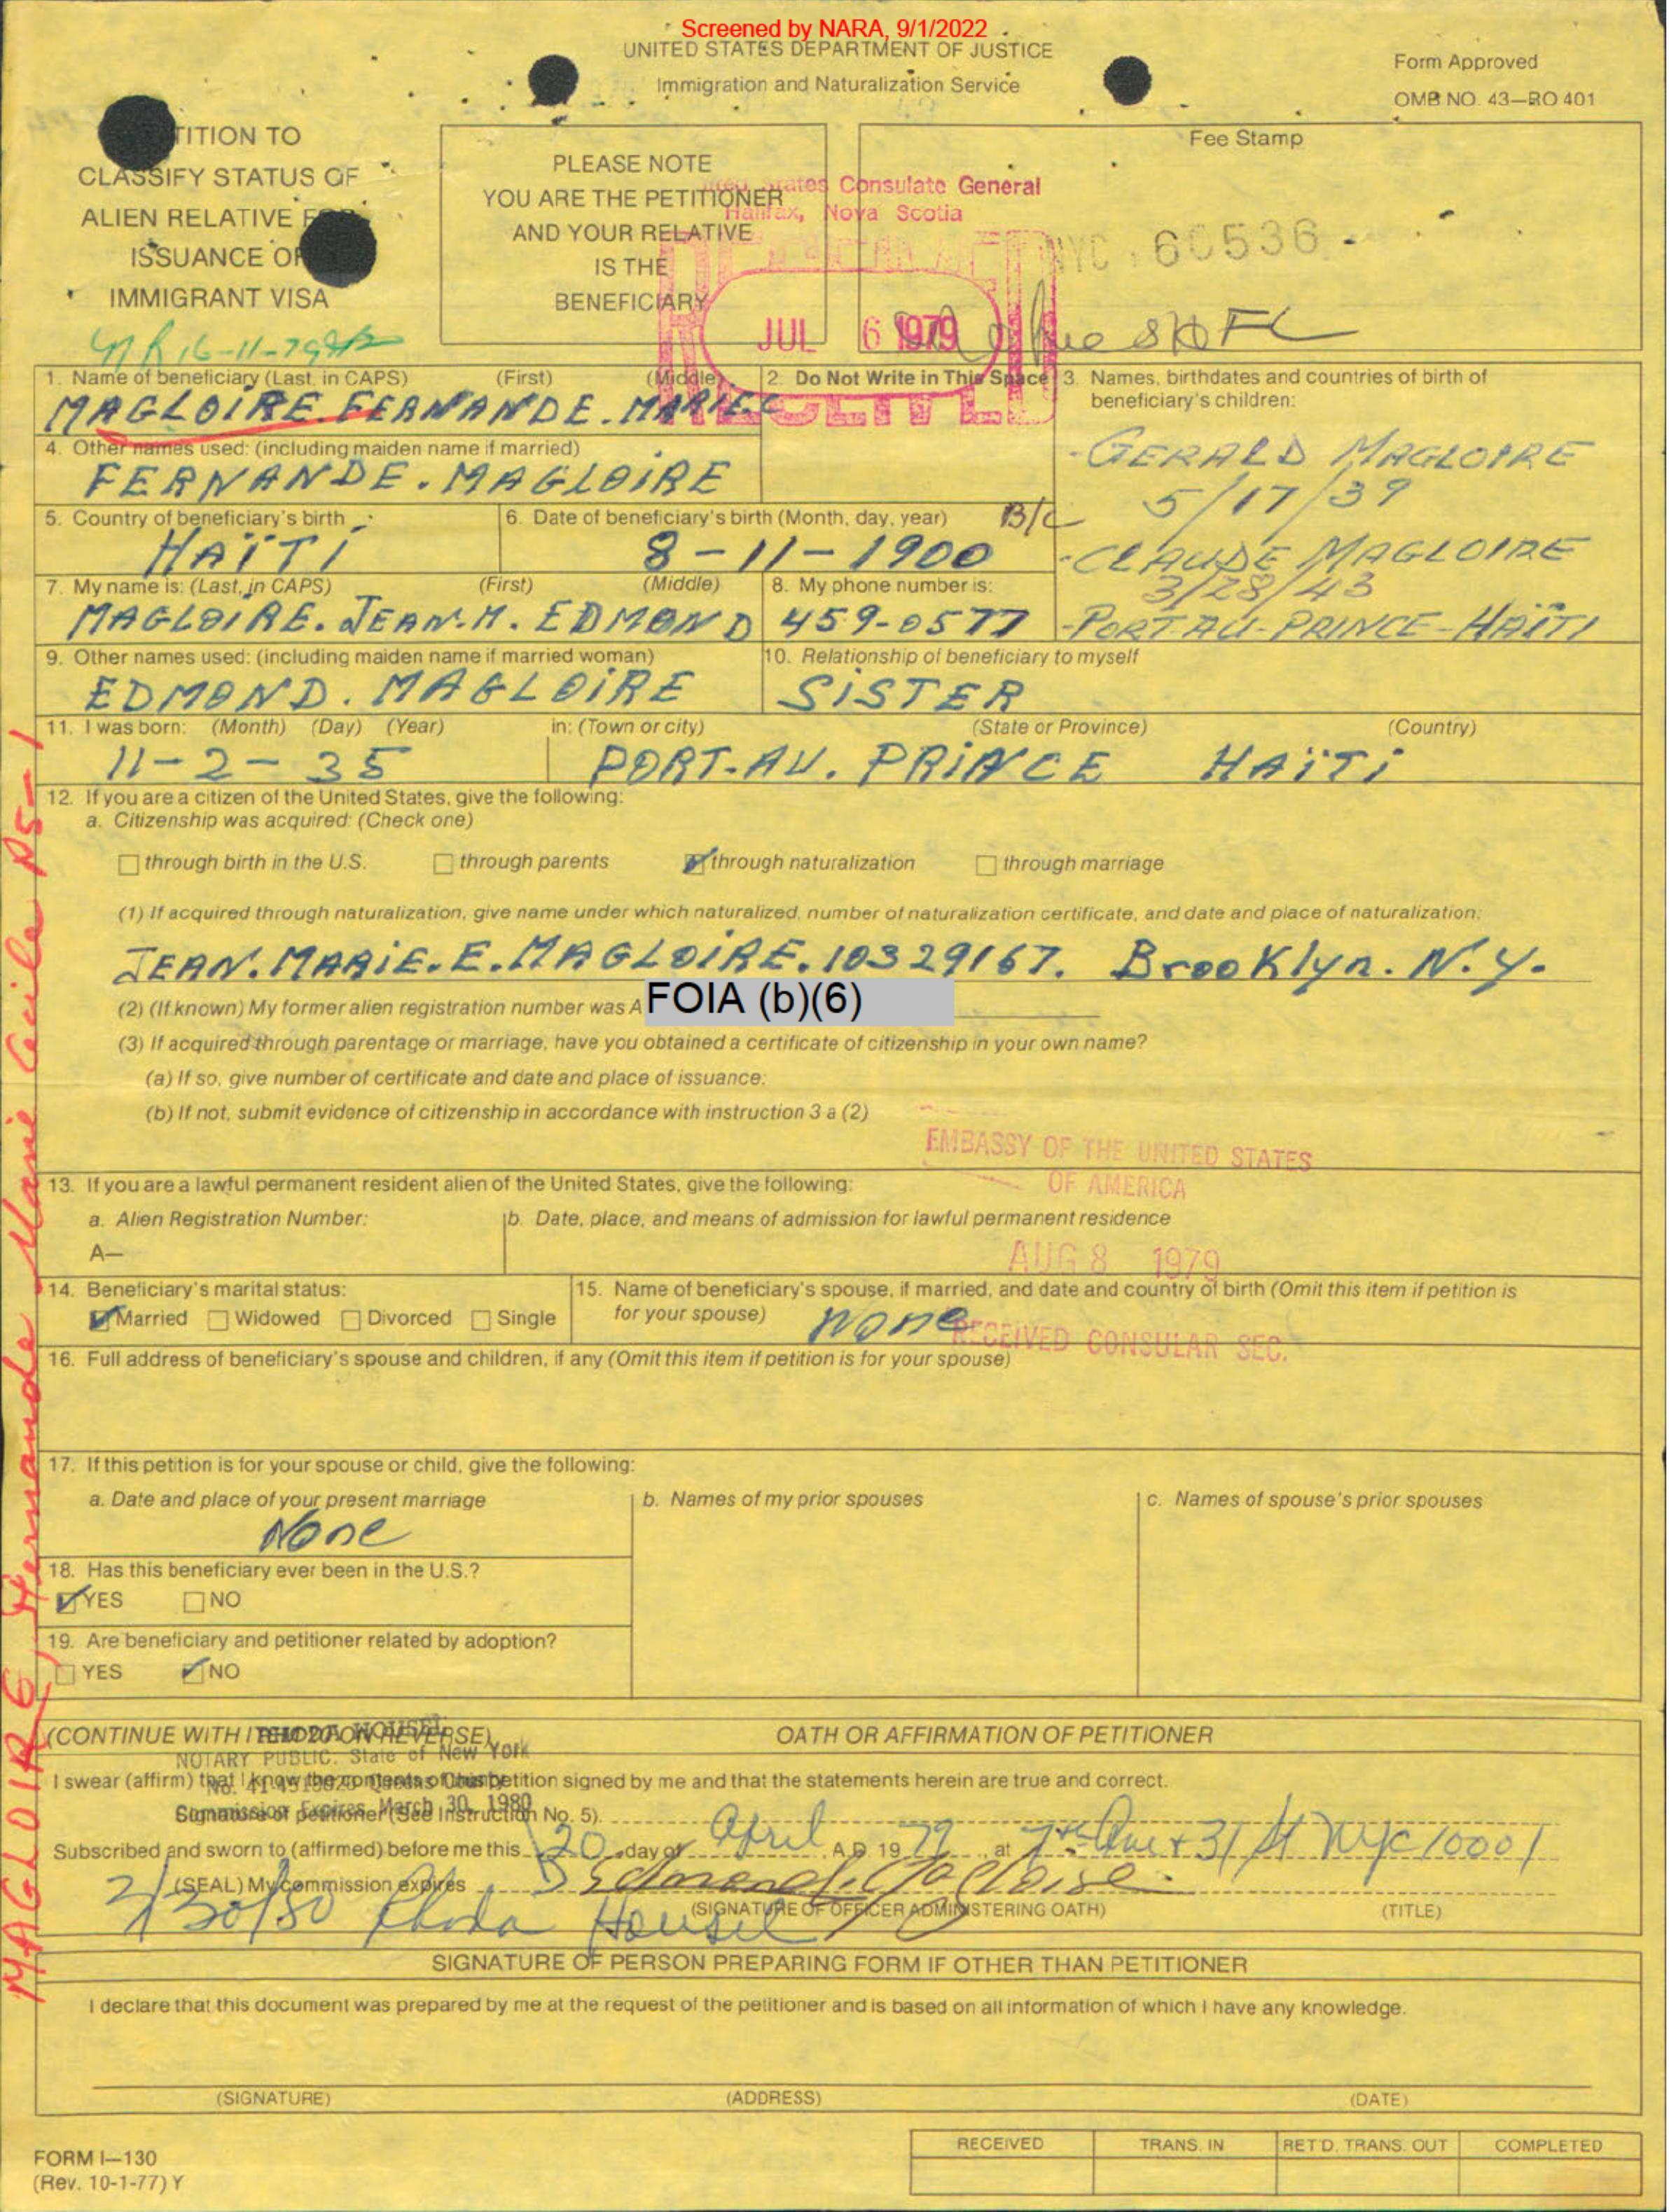 Screened by NARA, 9/1/2022
UNITED STATES DEPARTMENT OF JUSTICE
Immigration and Naturalization Service
Form Approved
OMB NO. 43—RO 401
TITION TO
CLASSIFY STATUS OF
ALIEN RELATIVE
ISSUANCE OF
IMMIGRANT VISA
PLEASE NOTE
YOU ARE THE PETITIONER
AND YOUR RELATIVE
IS THE
BENEFICIARY
Fee Stamp
States Consulate General
Halifax, Nova Scotia
NYC 60536
JUL 6 1979
RECEIVED
1. Name of beneficiary (Last, in CAPS) (First) (Middle)
MAGLOIRE. FERNANDE. MARIE. C
2. Do Not Write in This Space
3. Names, birthdates and countries of birth of
beneficiary's children:
- GERALD MAGLOIRE
5/17/39
- CLAUDE MAGLOIRE
3/28/43
- PORT-AU-PRINCE-HAÏTI
4. Other names used: (including maiden name if married)
FERNANDE. MAGLOIRE
5. Country of beneficiary's birth
HAÏTI
6. Date of beneficiary's birth (Month, day, year) B/C
8-11-1900
7. My name is: (Last, in CAPS) (First) (Middle)
MAGLOIRE. JEAN. M. EDMOND
8. My phone number is:
459-0577
9. Other names used: (including maiden name if married woman)
EDMOND. MAGLOIRE
10. Relationship of beneficiary to myself
SISTER
11. I was born: (Month) (Day) (Year) in: (Town or city) (State or Province) (Country)
11-2-35 PORT-AU. PRINCE HAÏTI
12. If you are a citizen of the United States, give the following:
a. Citizenship was acquired: (Check one)
through birth in the U.S. through parents through naturalization through marriage
(1) If acquired through naturalization, give name under which naturalized, number of naturalization certificate, and date and place of naturalization:
JEAN. MARIE. E. MAGLOIRE. 10329167. Brooklyn. N.Y.
(2) (If known) My former alien registration number was A FOIA (b)(6)
(3) If acquired through parentage or marriage, have you obtained a certificate of citizenship in your own name?
(a) If so, give number of certificate and date and place of issuance:
(b) If not, submit evidence of citizenship in accordance with instruction 3 a (2)
EMBASSY OF THE UNITED STATES
OF AMERICA
AUG 8 1979
RECEIVED CONSULAR SEC.
13. If you are a lawful permanent resident alien of the United States, give the following:
a. Alien Registration Number:
A—
b. Date, place, and means of admission for lawful permanent residence
14. Beneficiary's marital status:
Married Widowed Divorced Single
15. Name of beneficiary's spouse, if married, and date and country of birth (Omit this item if petition is
for your spouse) None
16. Full address of beneficiary's spouse and children, if any (Omit this item if petition is for your spouse)
17. If this petition is for your spouse or child, give the following:
a. Date and place of your present marriage
None
b. Names of my prior spouses
c. Names of spouse's prior spouses
18. Has this beneficiary ever been in the U.S.?
YES NO
19. Are beneficiary and petitioner related by adoption?
YES NO
(CONTINUE WITH ITEM 20 ON REVERSE)
RHODA HOUSEL
NOTARY PUBLIC. State of New York
Commission Expires March 30, 1980
OATH OR AFFIRMATION OF PETITIONER
I swear (affirm) that I know the contents of this petition signed by me and that the statements herein are true and correct.
Signature of petitioner (See Instruction No. 5).
Subscribed and sworn to (affirmed) before me this 20 day of April A.D. 1977, at 7th Ave + 31 St NYC 10001
(SEAL) My commission expires
Rhoda Housel
(SIGNATURE OF OFFICER ADMINISTERING OATH) (TITLE)
SIGNATURE OF PERSON PREPARING FORM IF OTHER THAN PETITIONER
I declare that this document was prepared by me at the request of the petitioner and is based on all information of which I have any knowledge.
(SIGNATURE) (ADDRESS) (DATE)
FORM I—130
(Rev. 10-1-77) Y
RECEIVED TRANS. IN RET'D. TRANS. OUT COMPLETED
MAGLOIRE, Fernande Marie Cecile P5-1